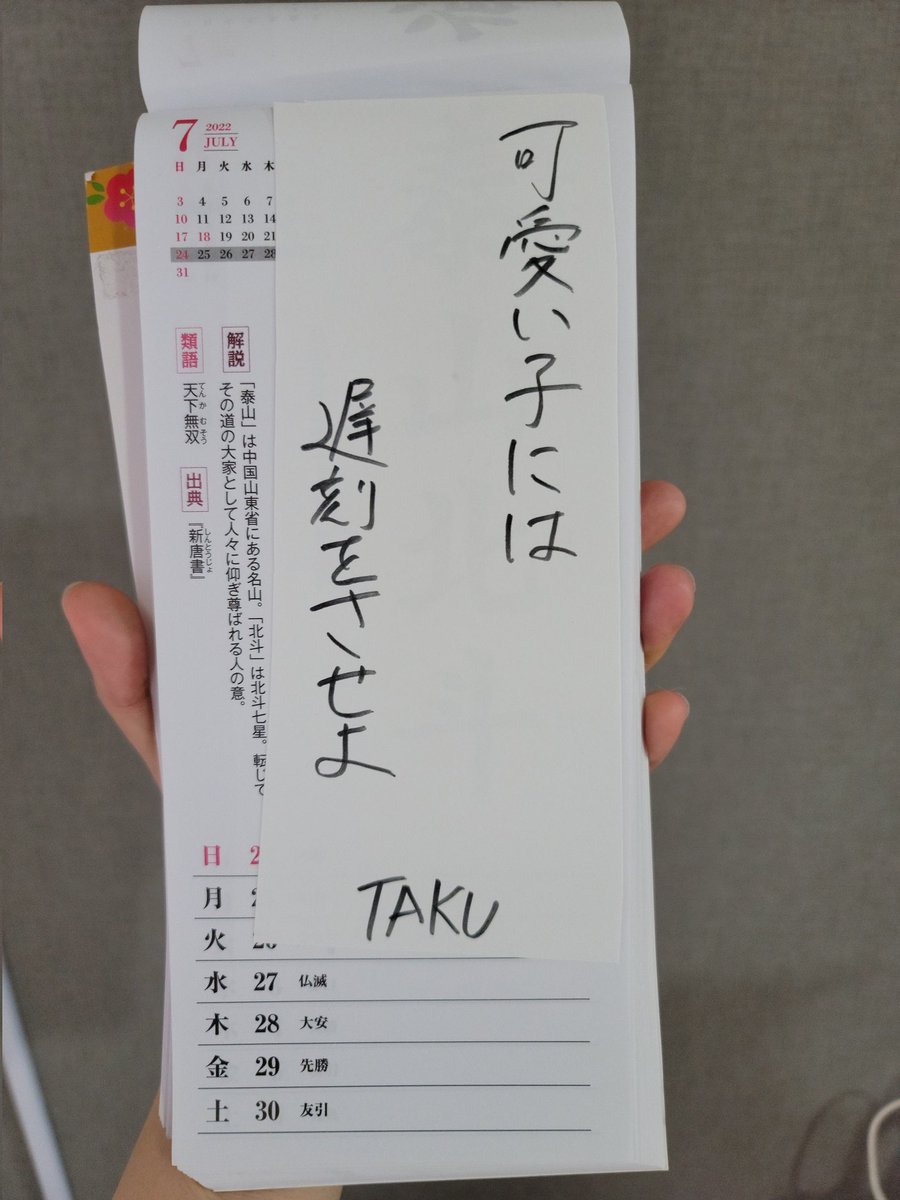 7
2022
JULY
日 月 火 水 木
3 4 5 6 7
10 11 12 13 14
17 18 19 20 21
24 25 26 27 28
31
可愛い子には
遅刻をさせよ
TAKU
解説
「泰山」は中国山東省にある名山。「北斗」は北斗七星。転じて
その道の大家として人々に仰ぎ尊ばれる人の意。
類語
天下無双
てんかむそう
出典
『新唐書』
しんとうじょ
日
月
火
水 27 仏滅
木 28 大安
金 29 先勝
土 30 友引